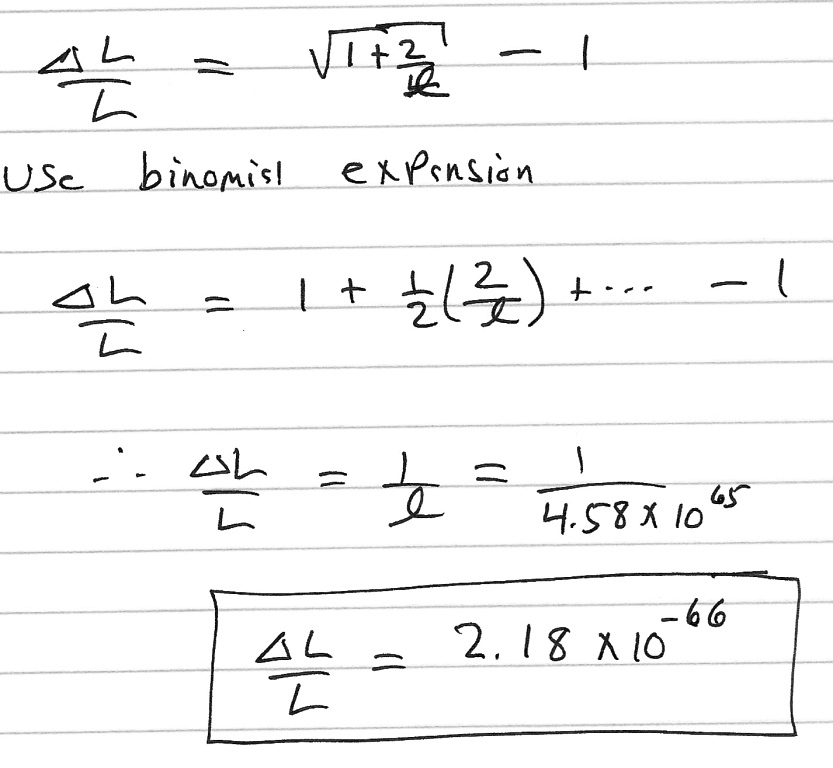 ΔL/L = √(1+2/ℓ) − 1
Use binomisl expension
ΔL/L = 1 + 1/2(2/ℓ) + ... − 1
∴ ΔL/L = 1/ℓ = 1/(4.58 × 10^65)
ΔL/L = 2.18 × 10^-66